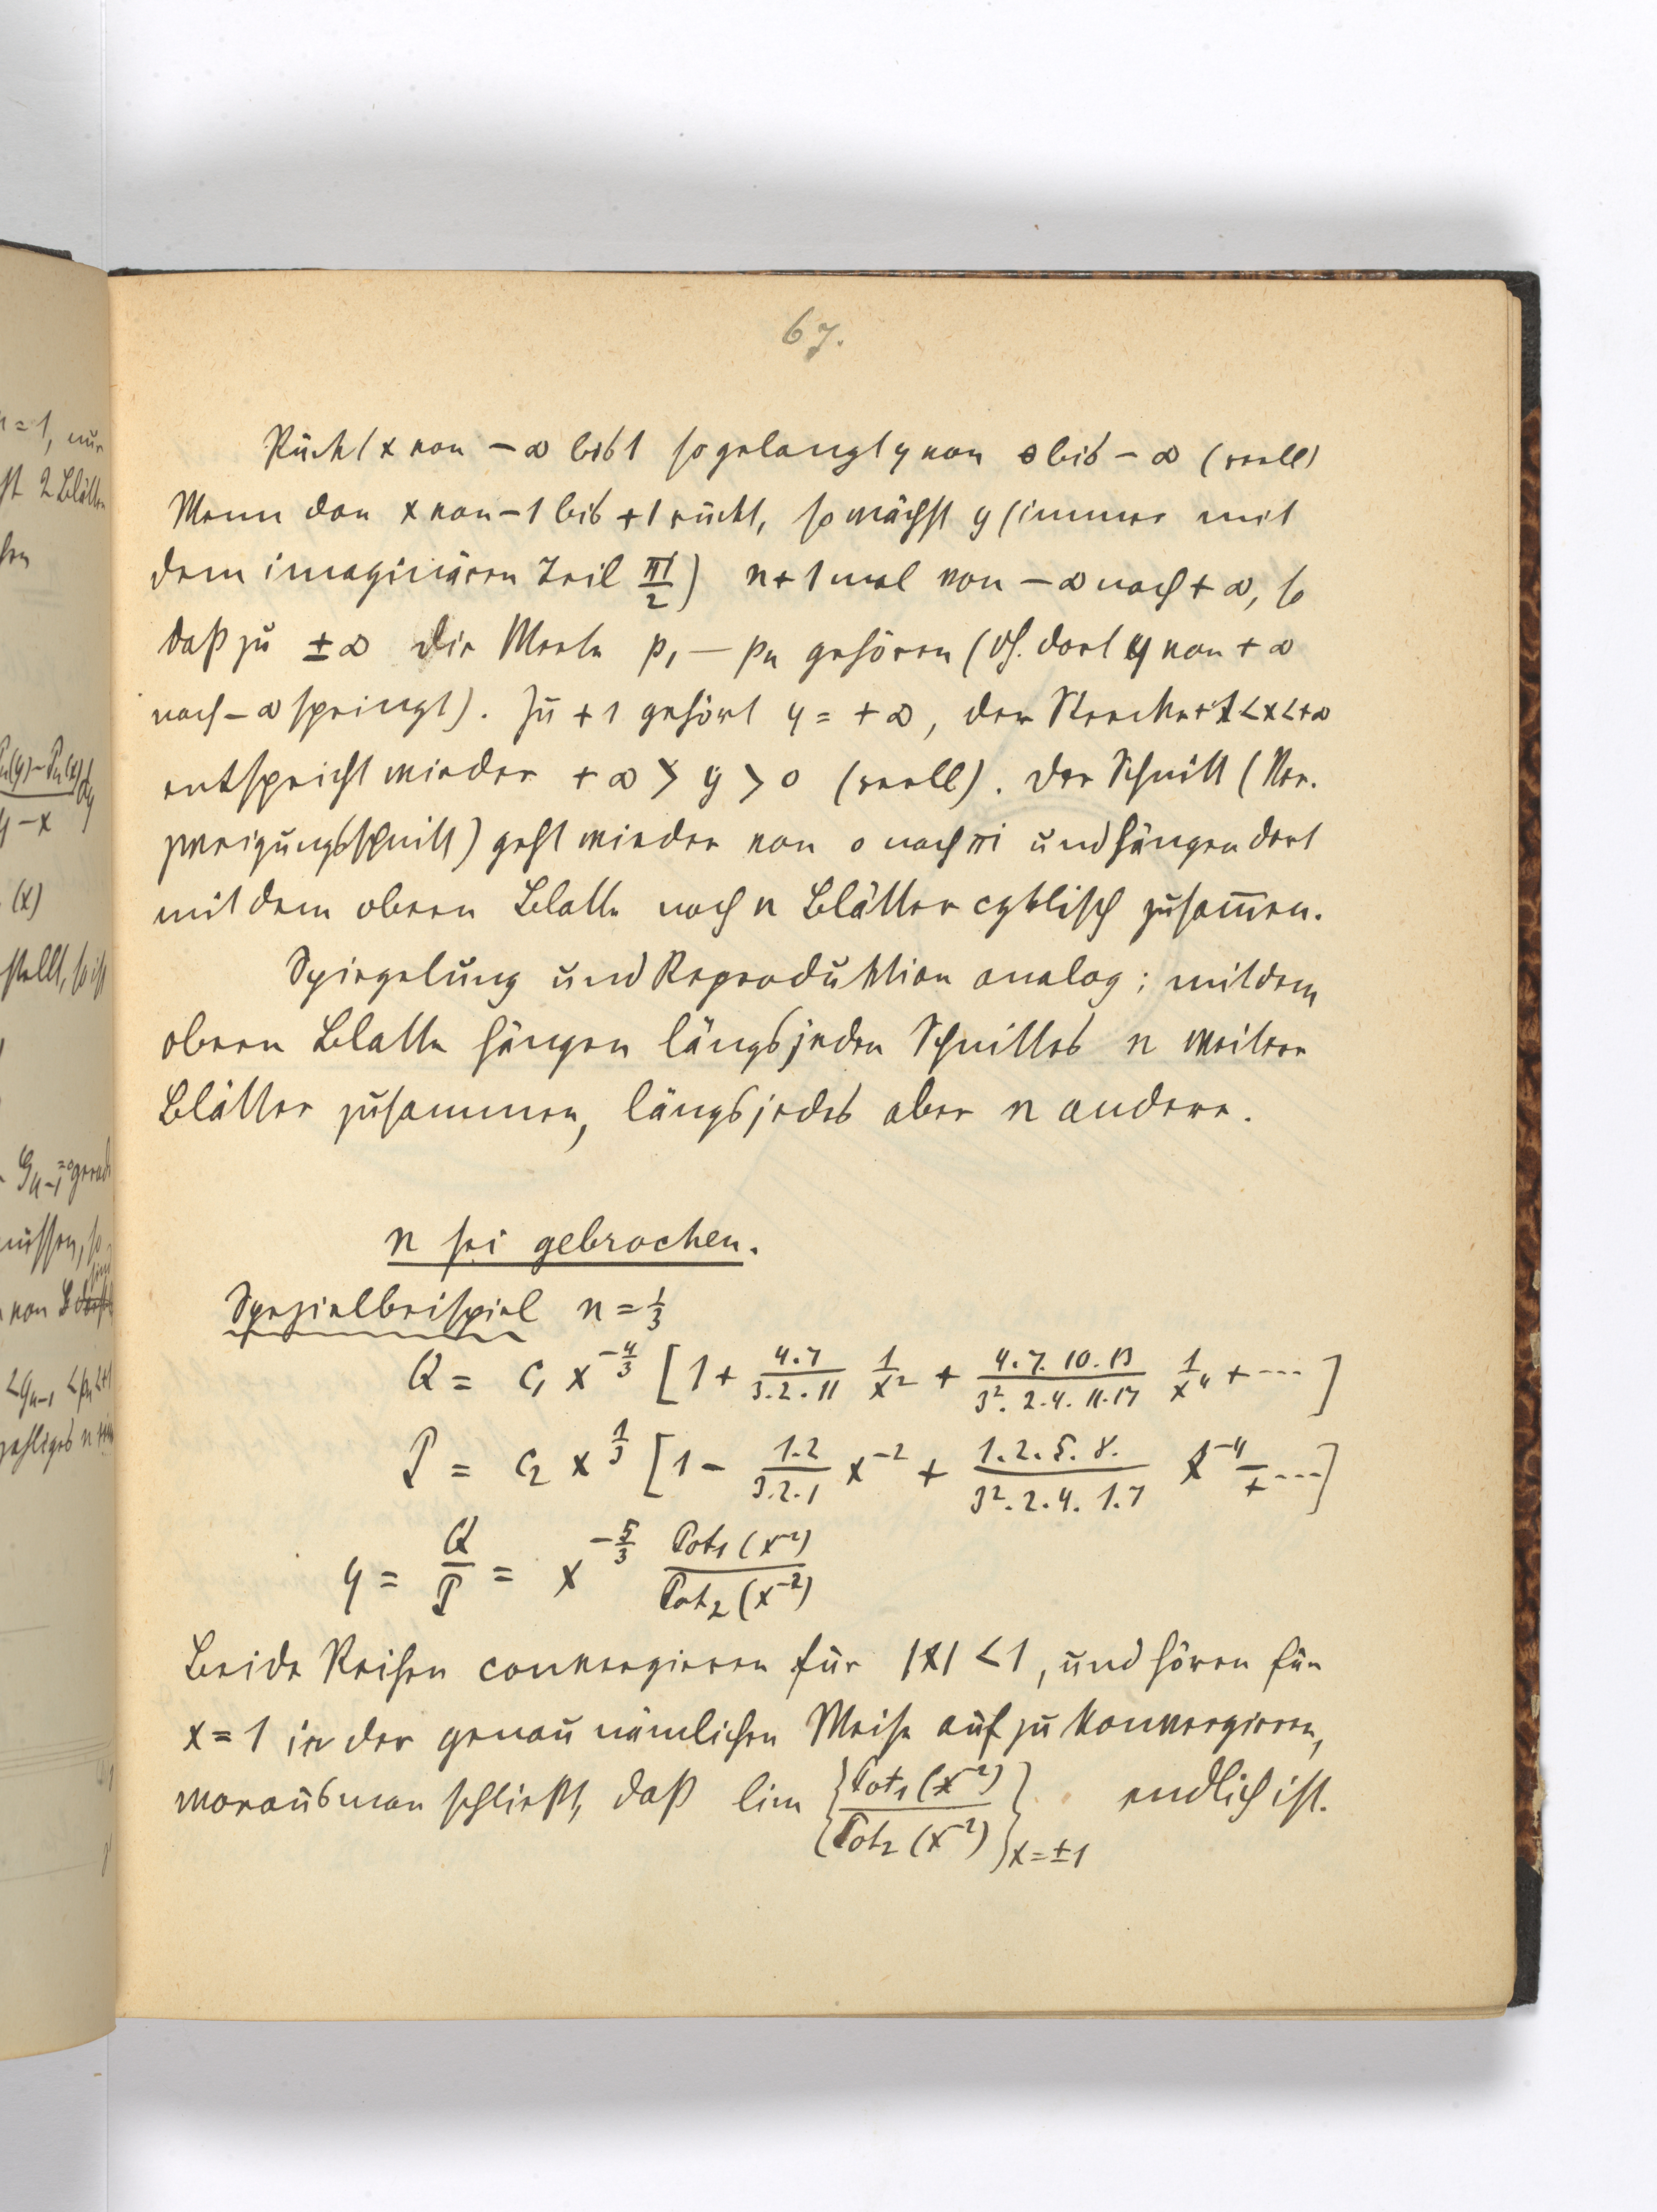 67.
Rückt x von − ∞ bis 1 so gelangt y von 0 bis − ∞ (reell)
Wenn dan x von −1 bis +1 rückt, so wächst y (immer mit
dem imaginären Teil πi/2) n+1 mal von − ∞ nach + ∞, so
daß zu ± ∞ die Werte p₁ — pₙ gehören (df. dort y von + ∞
nach − ∞ springt). Zu +1 gehört y = + ∞, der Strecke +1<x<+∞
entspricht wieder + ∞ > y > 0 (reell). Der Schnitt (Ver.
zweigungsschnitt) geht wieder von 0 nach πi und hängen dort
mit dem obern Blatte noch n Blätter cyklisch zusam̅en.
Spiegelung und Reproduktion analog; mit dem
obern Blatte hängen längs jeden Schnittes n weitere
Blätter zusammen, längs jedes aber n andere.
n sei gebrochen.
Spezielbeispiel n = 1/3
Q = c₁ x^{-4/3} [1 + \frac{4.7}{3.2.11} \frac{1}{x^2} + \frac{4.7.10.13}{3^2.2.4.11.17} \frac{1}{x^4} + ···]
P = c₂ x^{1/3} [1 − \frac{1.2}{3.2.1} x^{-2} + \frac{1.2.5.8.}{3^2.2.4.1.7} x^{-4} ∓ ···]
y = \frac{Q}{P} = x^{-5/3} \frac{Pot₁(x^{-2})}{Pot₂(x^{-2})}
Beide Reihen convergieren für |x| < 1, und hören für
x = 1 in der genau nämlichen Weise auf zu konvergieren,
woraus man schließt, daß lim {\frac{Pot₁(x^{-2})}{Pot₂(x^{-2})}}_{x=±1} endlich ist.